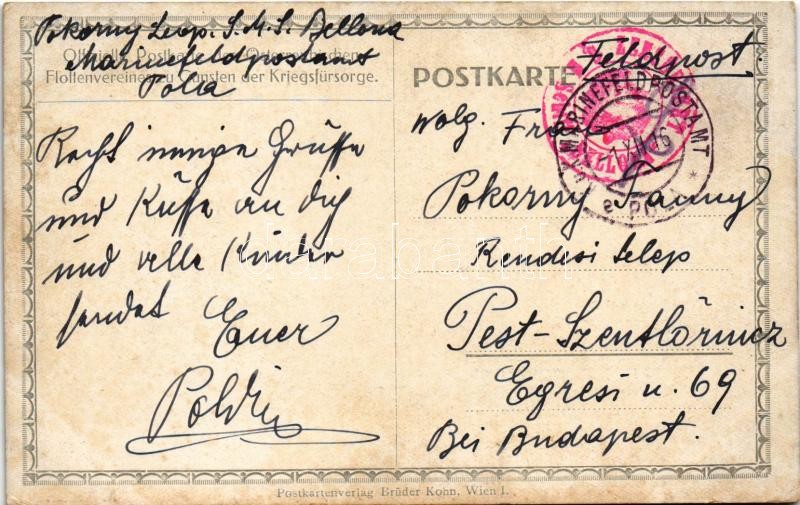 Pokorny Leop. S.M.S. Bellona
Offizielle Postkarte des Österreichischen
Marinefeldpostamt
Flottenvereines zu Gunsten der Kriegsfürsorge.
Pola
Recht innige Grüsse
und Küsse an dich
und alle Kinder
sendet Euer
Poldi
POSTKARTE
Feldpost
K.u.K. MARINEFELDPOSTAMT
XII 16
e POLA *
Wolg. Frau
Pokorny Fanny
Rendesi telep
Pest-Szentlőrincz
Egresi u. 69
Bei Budapest.
Postkartenverlag Brüder Kohn, Wien I.